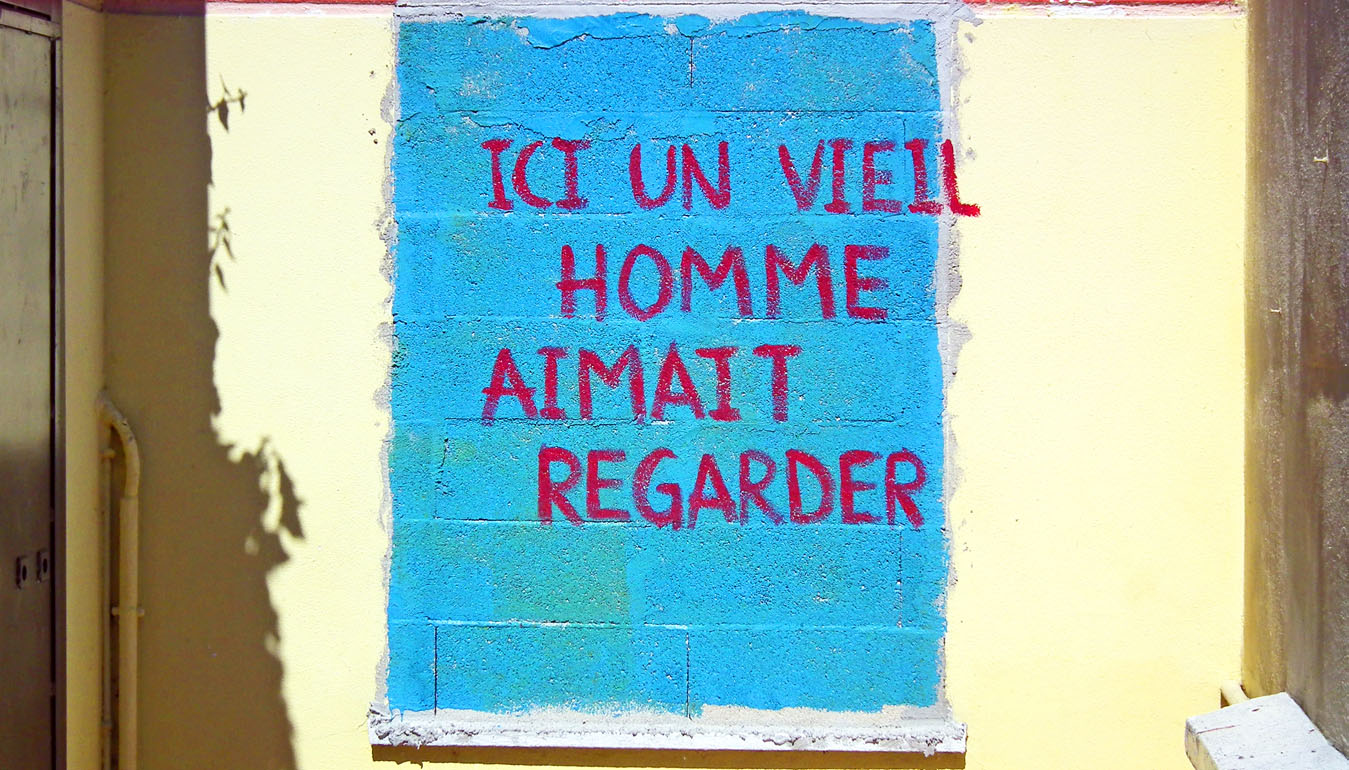 ICI UN VIEIL
HOMME
AIMAIT
REGARDER